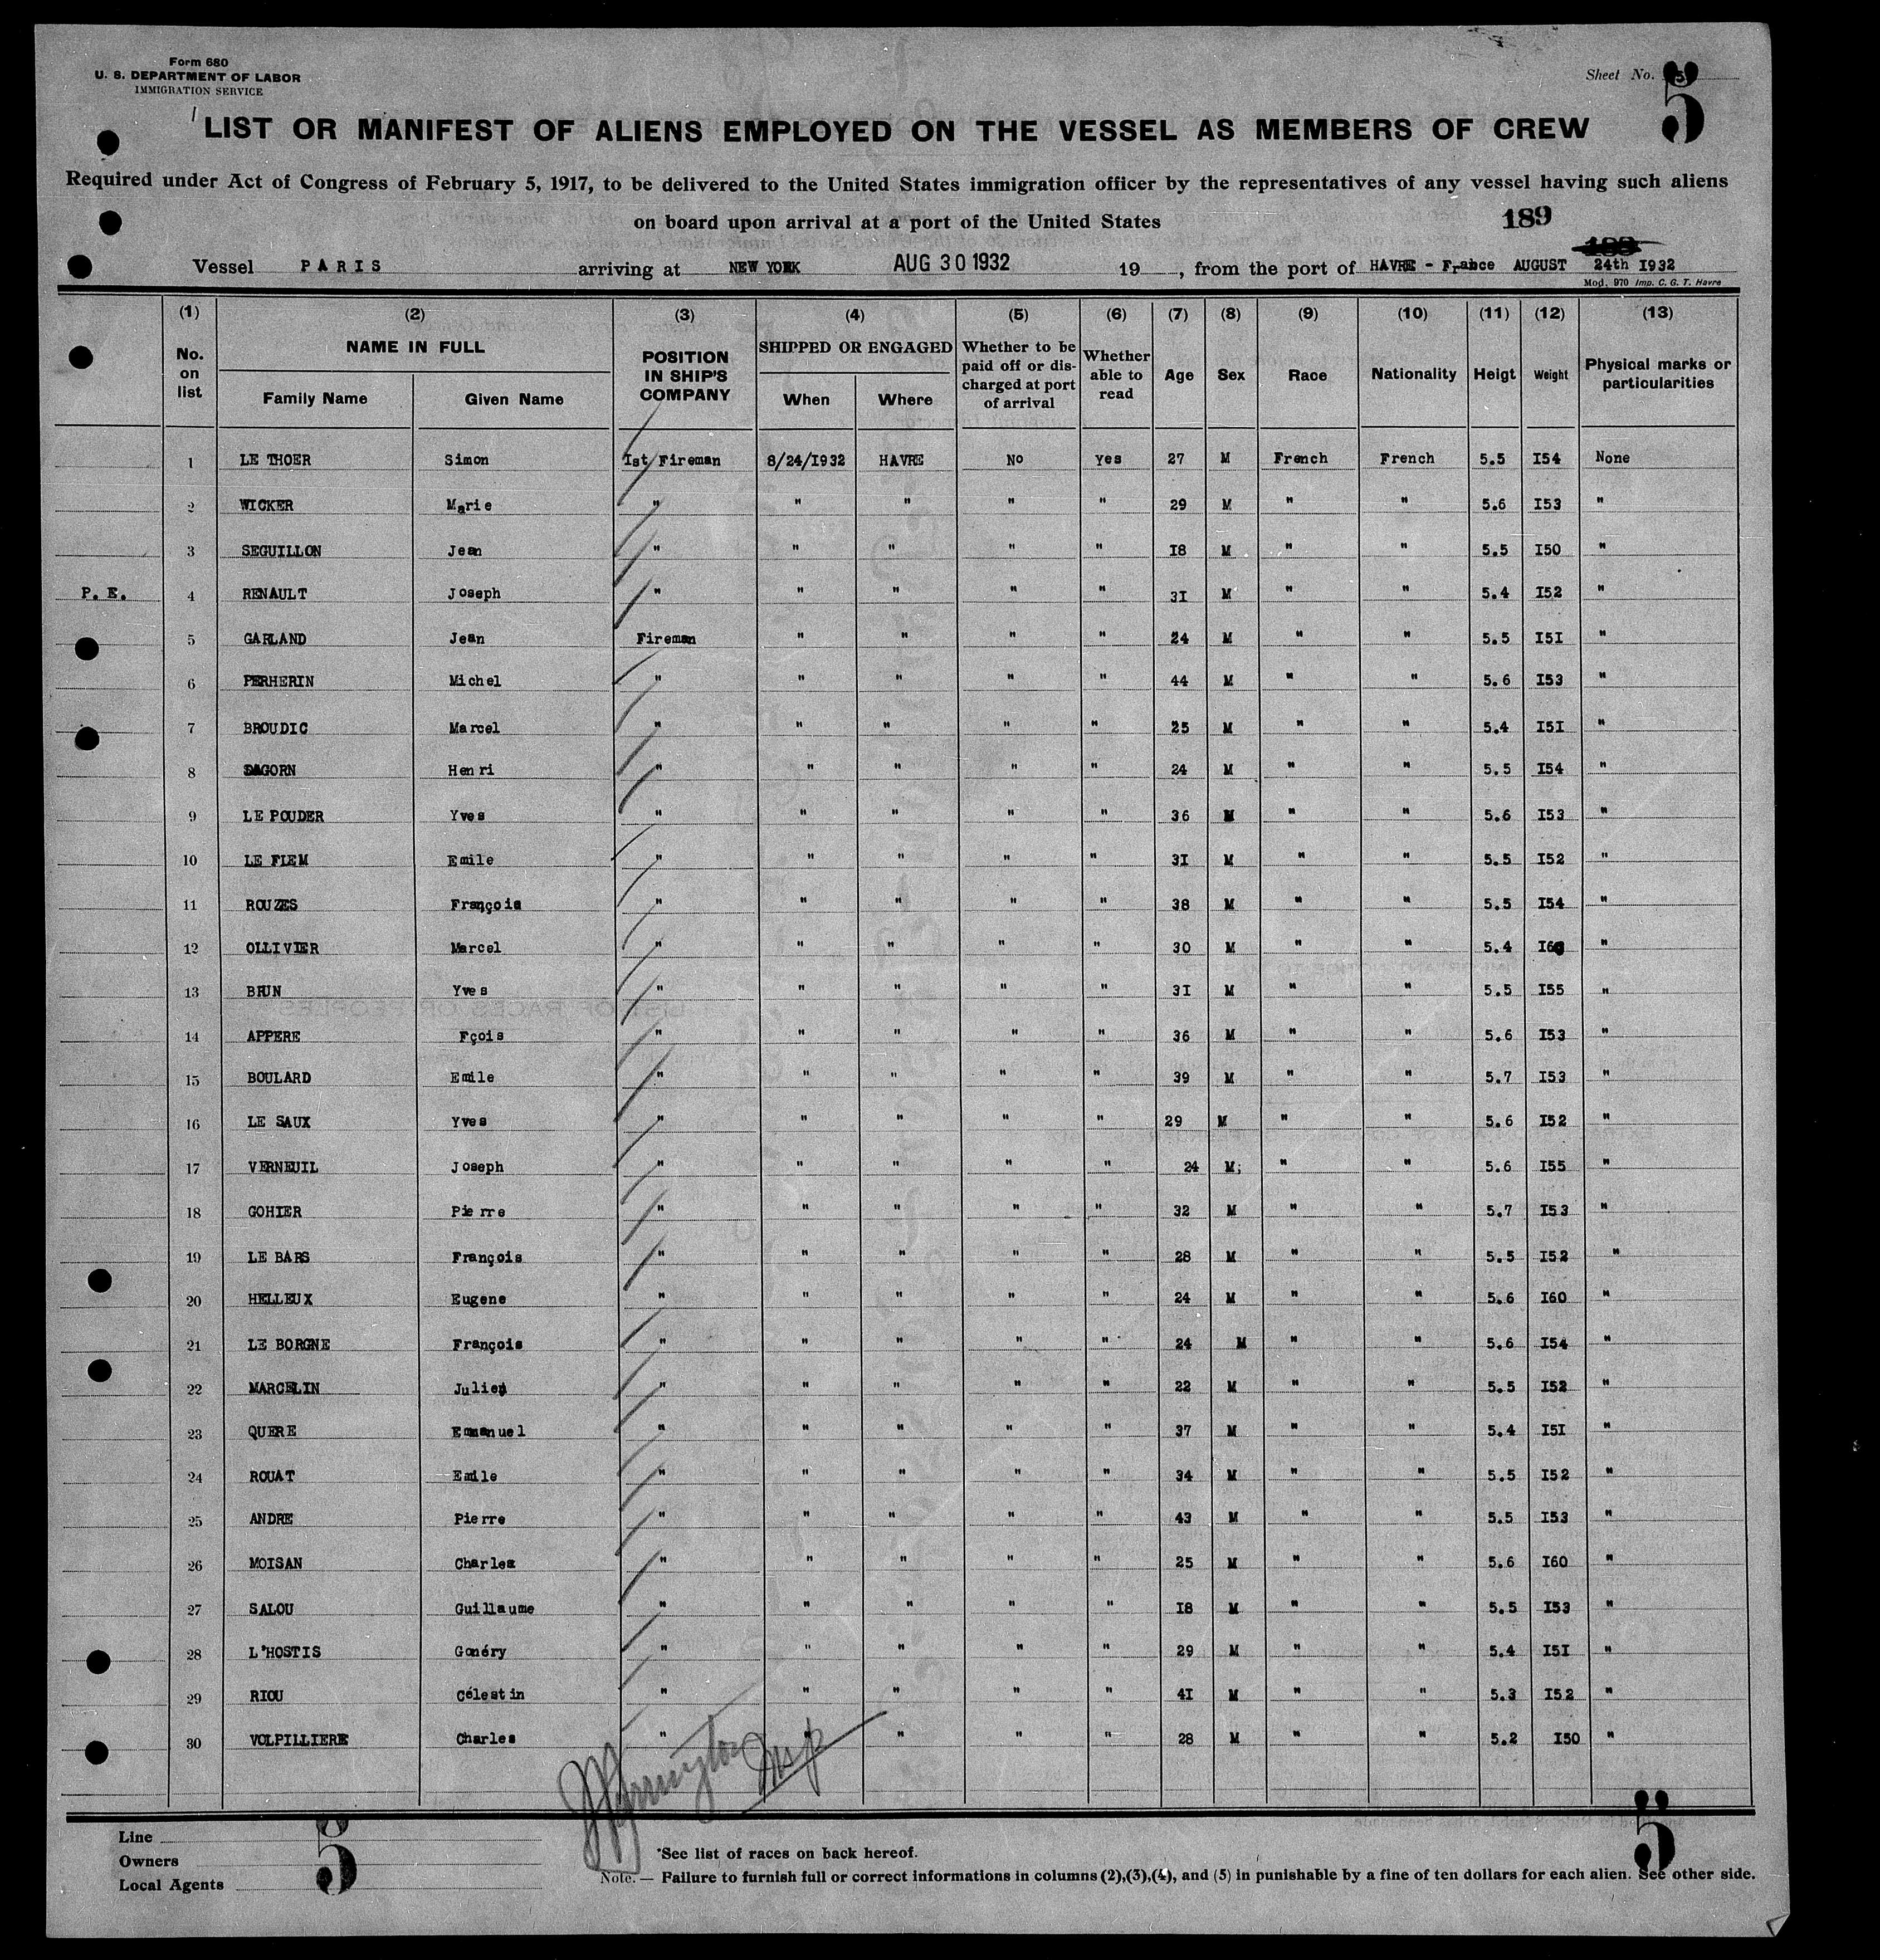 Form 680
U. S. DEPARTMENT OF LABOR
IMMIGRATION SERVICE
Sheet No. 5
5
LIST OR MANIFEST OF ALIENS EMPLOYED ON THE VESSEL AS MEMBERS OF CREW
Required under Act of Congress of February 5, 1917, to be delivered to the United States immigration officer by the representatives of any vessel having such aliens
on board upon arrival at a port of the United States
189
Vessel PARIS arriving at NEW YORK AUG 30 1932 19 , from the port of HAVRE - France AUGUST 24th I932
Mod. 970 Imp. C. G. T. Havre
(1) (2) (3) (4) (5) (6) (7) (8) (9) (10) (11) (12) (13)
No. on list NAME IN FULL Family Name Given Name POSITION IN SHIP'S COMPANY SHIPPED OR ENGAGED When Where Whether to be paid off or discharged at port of arrival Whether able to read Age Sex Race Nationality Heigt Weight Physical marks or particularities
1 LE THOER Simon Ist Fireman 8/24/I932 HAVRE No yes 27 M French French 5.5 I54 None
2 WICKER Marie " " " " " 29 M " " 5.6 I53 "
3 SEGUILLON Jean " " " " " I8 M " " 5.5 I50 "
P. E. 4 RENAULT Joseph " " " " " 3I M " " 5.4 I52 "
5 GARLAND Jean Fireman " " " " 24 M " " 5.5 I5I "
6 PERHERIN Michel " " " " " 44 M " " 5.6 I53 "
7 BROUDIC Marcel " " " " " 25 M " " 5.4 I5I "
8 DAGORN Henri " " " " " 24 M " " 5.5 I54 "
9 LE POUDER Yves " " " " " 36 M " " 5.6 I53 "
10 LE FLEM Emile " " " " " 3I M " " 5.5 I52 "
11 ROUZES François " " " " " 38 M " " 5.5 I54 "
12 OLLIVIER Marcel " " " " " 30 M " " 5.4 "
13 BRUN Yves " " " " " 3I M " " 5.5 I55 "
14 APPERE Fçois " " " " " 36 M " " 5.6 I53 "
15 BOULARD Emile " " " " " 39 M " " 5.7 I53 "
16 LE SAUX Yves " " " " " 29 M " " 5.6 I52 "
17 VERNEUIL Joseph " " " " " 24 M; " " 5.6 I55 "
18 GOHIER Pierre " " " " " 32 M " " 5.7 I53 "
19 LE BARS François " " " " " 28 M " " 5.5 I52 "
20 HELLEUX Eugene " " " " " 24 M " " 5.6 I60 "
21 LE BORGNE François " " " " " 24 M " " 5.6 I54 "
22 MARCELIN Julien " " " " " 22 M " " 5.5 I52 "
23 QUERE Emmanuel " " " " " 37 M " " 5.4 I5I "
24 ROUAT Emile " " " " " 34 M " " 5.5 I52 "
25 ANDRE Pierre " " " " " 43 M " " 5.5 I53 "
26 MOISAN Charles " " " " " 25 M " " 5.6 I60 "
27 SALOU Guillaume " " " " " I8 M " " 5.5 I53 "
28 L'HOSTIS Gonéry " " " " " 29 M " " 5.4 I5I "
29 RIOU Célestin " " " " " 4I M " " 5.3 I52 "
30 VOLPILLIERE Charles " " " " " 28 M " " 5.2 I50 "
Insp
Line
Owners
Local Agents
5
5
*See list of races on back hereof.
Note. — Failure to furnish full or correct informations in columns (2),(3),(4), and (5) in punishable by a fine of ten dollars for each alien. See other side.